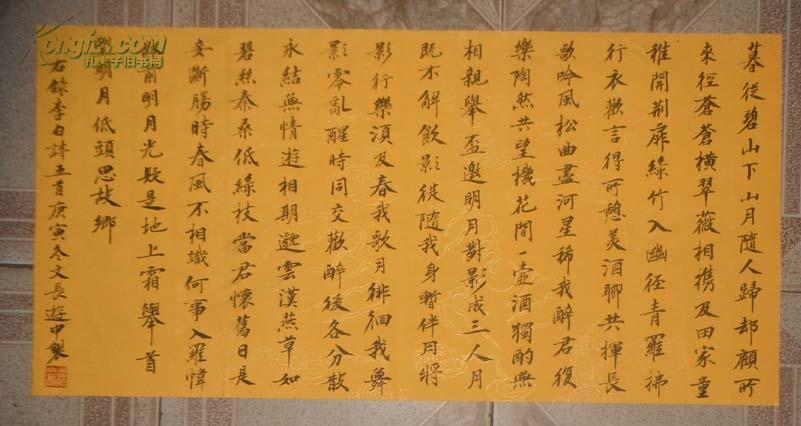 暮從碧山下山月隨人歸却顧所
來徑蒼蒼橫翠薇相携及田家童
稚開荆扉綠竹入幽徑青羅拂
行衣歡言得所憩美酒聊共揮長
歌吟風松曲盡河星稀我醉君復
樂陶然共望機花間一壺酒獨酌無
相親舉盃邀明月對影成三人月
既不解飲影徒隨我身暫伴月將
影行樂須及春我歌月徘徊我舞
影零亂醒時同交歡醉後各分散
永結無情遊相期邈雲漢燕草如
碧絲秦桑低綠枝當君懷舊日是
妾斷腸時春風不相識何事入羅幃
床前明月光疑是地上霜舉首
望明月低頭思故鄉
右錄李白詩五首庚寅冬文長遊中製
孔夫子旧书网